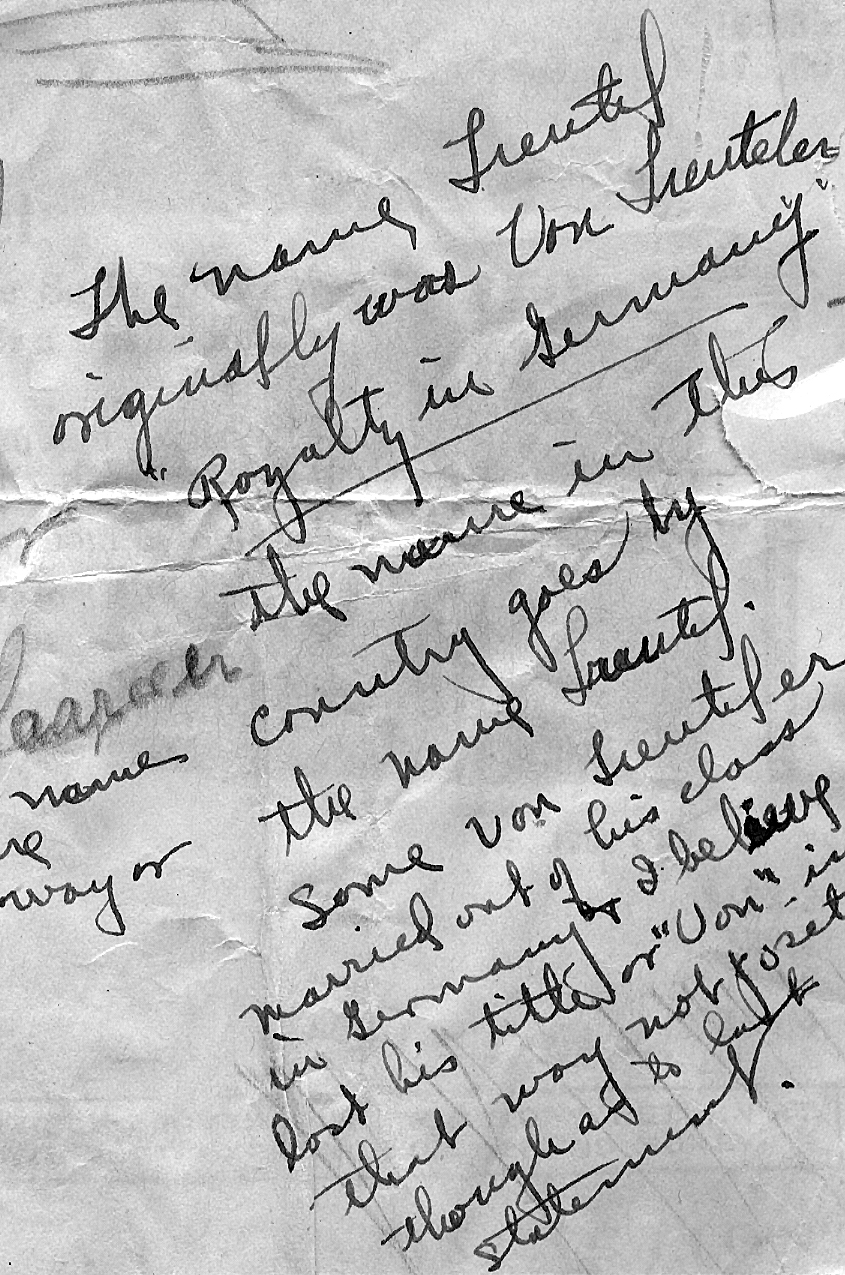 The name Treutel
originally was Von Treuteler
"Royalty in Germany"
the name in this
country goes by
the name Treutel.
Some von Treuteler
married out of his class
in Germany & I believe
lost his title or "Von" in
that way not poset
though as to last
statement.
name
way or